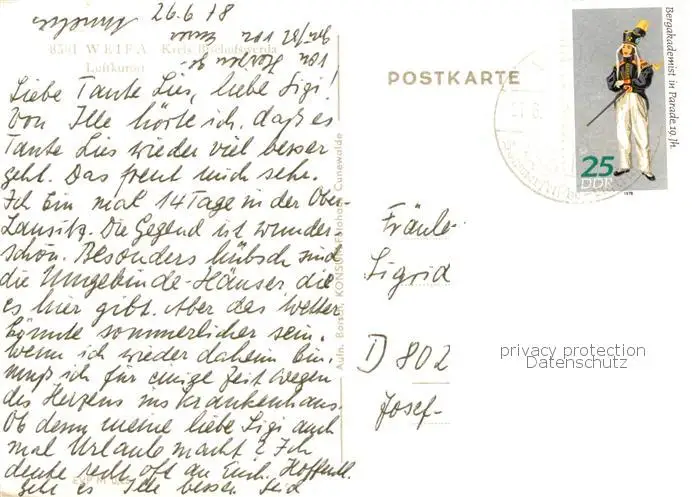 26.6.78
8501 WEIFA Kreis Bischofswerda
Luftkurort
Liebe Tante Lies, liebe Sigi!
Von Ille hörte ich, daß es
Tante Lies wieder viel besser
geht. Das freut mich sehr.
Ich bin mal 14 Tage in der Ober-
Lausitz. Die Gegend ist wunder-
schön. Besonders hübsch sind
die Umgebinde-Häuser, die
es hier gibt. Aber das Wetter
könnte sommerlicher sein.
Wenn ich wieder daheim bin,
muß ich für einige Zeit wegen
des Herzens ins Krankenhaus.
Ob denn meine liebe Sigi auch
mal Urlaub macht? Ich
denke recht oft an Euch. Hoffentl.
geht es Ille besser. Seid
Aufn. Borsch, KONSUM-Fotohaus Cunewalde
POSTKARTE
Bergakademist in Parade 19. Jh.
25
DDR
1978
Fräule-
Sigrid
D 802
Josef-
privacy protection
Datenschutz